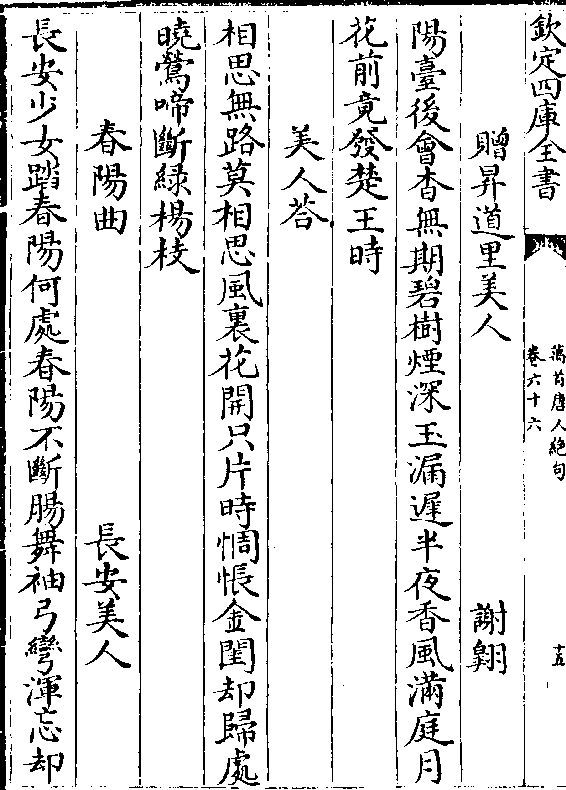 欽定四庫全書
萬首唐人絕句
卷六十六
十五
贈昇道里美人
謝翺
陽臺後會杳無期碧樹煙深玉漏遲半夜香風滿庭月
花前竟發楚王時
美人荅
相思無路莫相思風裏花開只片時惆悵金閨却歸處
曉鶯啼斷緑楊枝
春陽曲
長安美人
長安少女踏春陽何處春陽不斷腸舞袖弓彎渾忘却